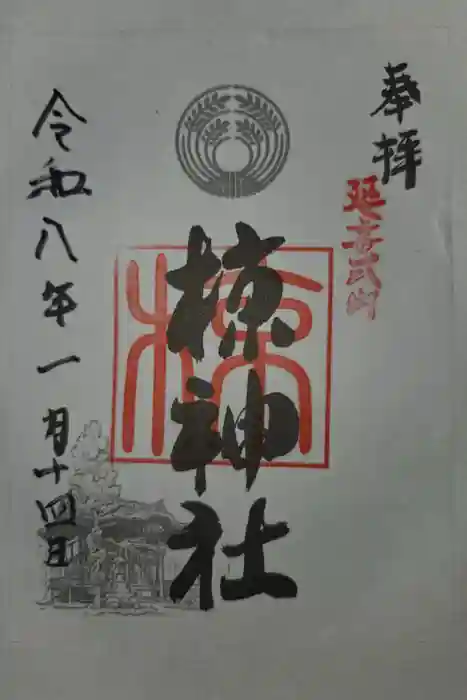 奉拝
延喜式内
椋神社
椋
令和八年一月十四日